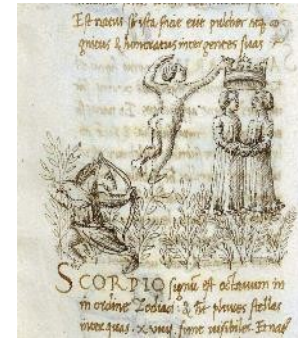 Est natus si ista facie erit pulcher atq; co
gnitus & honoratus inter gentes suas
SCORPIO signũ est octauum in
in ordine Zodiaci: & st plures stellas
inter quas . x. viiij. sunt uisibiles. Et nas